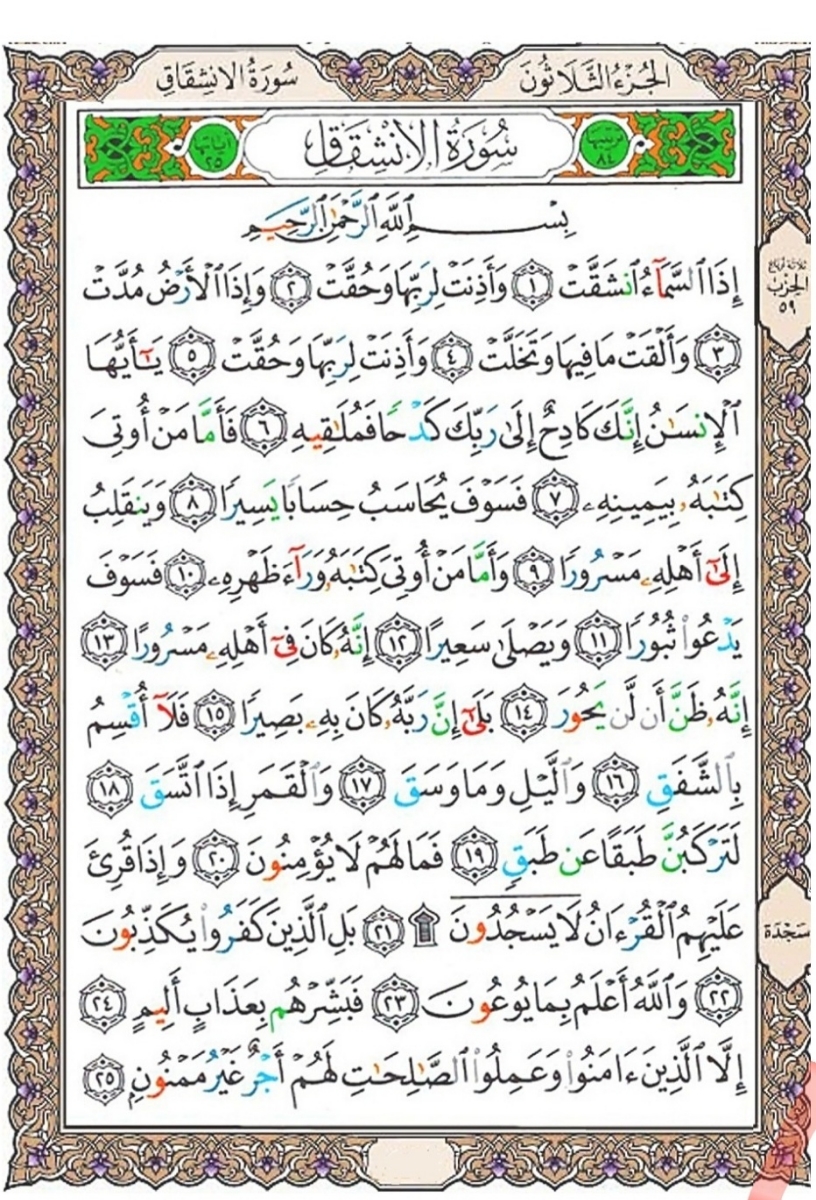 الجُزْءُ الثَّلَاثُونَ
سُورَةُ الانشِقَاقِ
ترتيبها ٨٤
سُورَةُ الانشِقَاقِ
آياتها ٢٥
بِسْمِ ٱللَّهِ ٱلرَّحْمَٰنِ ٱلرَّحِيمِ
إِذَا ٱلسَّمَآءُ ٱنشَقَّتْ ١ وَأَذِنَتْ لِرَبِّهَا وَحُقَّتْ ٢ وَإِذَا ٱلْأَرْضُ مُدَّتْ
٣ وَأَلْقَتْ مَا فِيهَا وَتَخَلَّتْ ٤ وَأَذِنَتْ لِرَبِّهَا وَحُقَّتْ ٥ يَٰٓأَيُّهَا
ٱلْإِنسَٰنُ إِنَّكَ كَادِحٌ إِلَىٰ رَبِّكَ كَدْحًا فَمُلَٰقِيهِ ٦ فَأَمَّا مَنْ أُوتِىَ
كِتَٰبَهُۥ بِيَمِينِهِۦ ٧ فَسَوْفَ يُحَاسَبُ حِسَابًا يَسِيرًا ٨ وَيَنقَلِبُ
إِلَىٰٓ أَهْلِهِۦ مَسْرُورًا ٩ وَأَمَّا مَنْ أُوتِىَ كِتَٰبَهُۥ وَرَآءَ ظَهْرِهِۦ ١٠ فَسَوْفَ
يَدْعُوا۟ ثُبُورًا ١١ وَيَصْلَىٰ سَعِيرًا ١٢ إِنَّهُۥ كَانَ فِىٓ أَهْلِهِۦ مَسْرُورًا ١٣
إِنَّهُۥ ظَنَّ أَن لَّن يَحُورَ ١٤ بَلَىٰٓ إِنَّ رَبَّهُۥ كَانَ بِهِۦ بَصِيرًا ١٥ فَلَآ أُقْسِمُ
بِٱلشَّفَقِ ١٦ وَٱلَّيْلِ وَمَا وَسَقَ ١٧ وَٱلْقَمَرِ إِذَا ٱتَّسَقَ ١٨
لَتَرْكَبُنَّ طَبَقًا عَن طَبَقٍ ١٩ فَمَا لَهُمْ لَا يُؤْمِنُونَ ٢٠ وَإِذَا قُرِئَ
عَلَيْهِمُ ٱلْقُرْءَانُ لَا يَسْجُدُونَ ۩ ٢١ بَلِ ٱلَّذِينَ كَفَرُوا۟ يُكَذِّبُونَ
٢٢ وَٱللَّهُ أَعْلَمُ بِمَا يُوعُونَ ٢٣ فَبَشِّرْهُم بِعَذَابٍ أَلِيمٍ ٢٤
إِلَّا ٱلَّذِينَ ءَامَنُوا۟ وَعَمِلُوا۟ ٱلصَّٰلِحَٰتِ لَهُمْ أَجْرٌ غَيْرُ مَمْنُونٍۭ ٢٥
ثلاثة أرباع
الحزب
٥٩
سَجْدَة